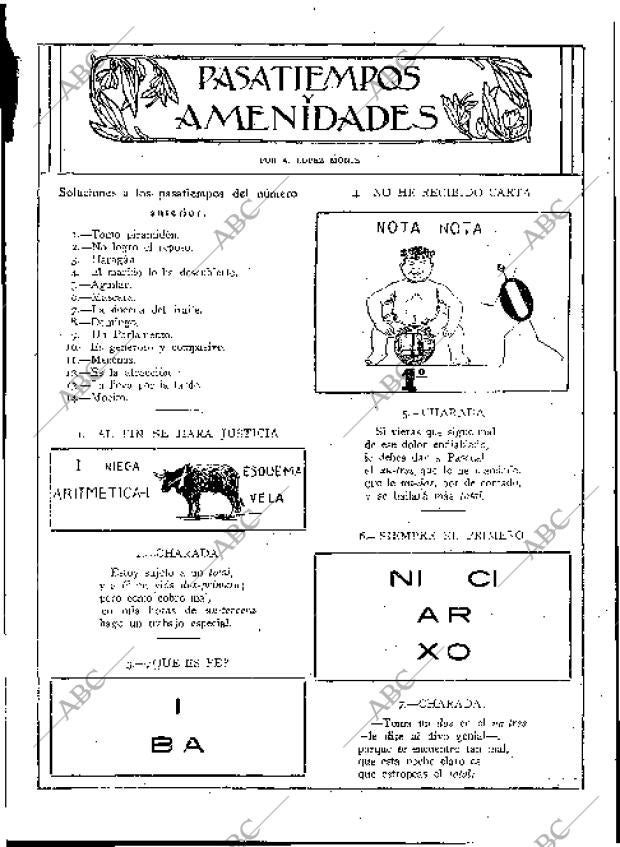 PASATIEMPOS
Y
AMENIDADES
POR A. LOPEZ
Soluciones a los pasatiempos del número
anterior.
1.—Tomo piramidón.
2.—No logro el reposo.
3.—Haragán
4.—El marido lo ha descubierto.
5.—Aguilar.
6.—Mascara.
7.—La docena del fraile.
8.—Domingo.
9.—Un Parlamento.
10.—Es generoso y compasivo.
11.—Mecenas.
12.—Es la atracción
13.—La lleva por la tarde.
14.—
1. AL FIN SE HARA JUSTICIA
I NIEGA
ESQUEMA
ARITMETICA-I
VELA
2.—CHARADA
Estoy sujeto a un total,
y a él mi vida dos-primera;
pero como cobro mal,
en mis horas de un-tercera
hago un trabajo especial.
3.—¿QUE ES PE?
I
BA
4. NO HE RECIBIDO CARTA
NOTA NOTA
O
1º
5.—CHARADA
Si vieras que sigue mal
de ese dolor endiablado,
le debes dar a Pascual
el un-tres, que lo he mandado,
que le por de contado,
y se hallará más total.
6.—SIEMPRE EL PRIMERO
NI CI
AR
XO
7.—CHARADA.
—Toma un dos en el un-tres
—le dije al divo genial—,
porque te encuentro tan mal,
que esta noche claro es
que estropeas el total.